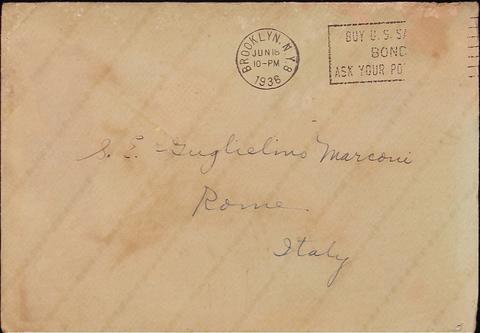 BROOKLYN, N.Y. 8
JUN 18
10-PM
1936
BUY U.S. SA
BOND
ASK YOUR PO
S. E. Guglielino Marconi
Rome
Italy